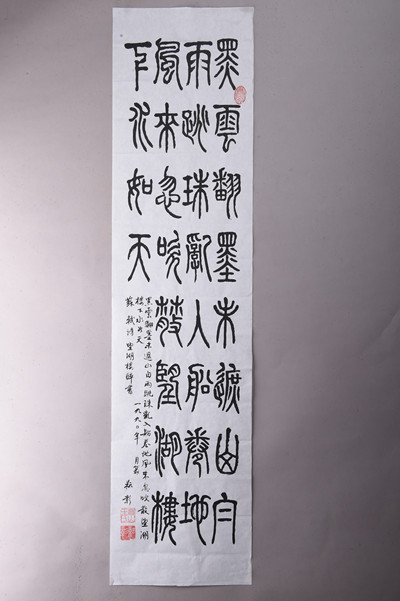 黑雲翻墨未遮山白
雨跳珠亂入船卷地
風來忽吹散望湖樓
下水如天
黑雲翻墨未遮山白雨跳珠亂入船卷地風來忽吹散望湖
樓下水如天
蘇軾詩望湖樓醉書
一九九〇年 月